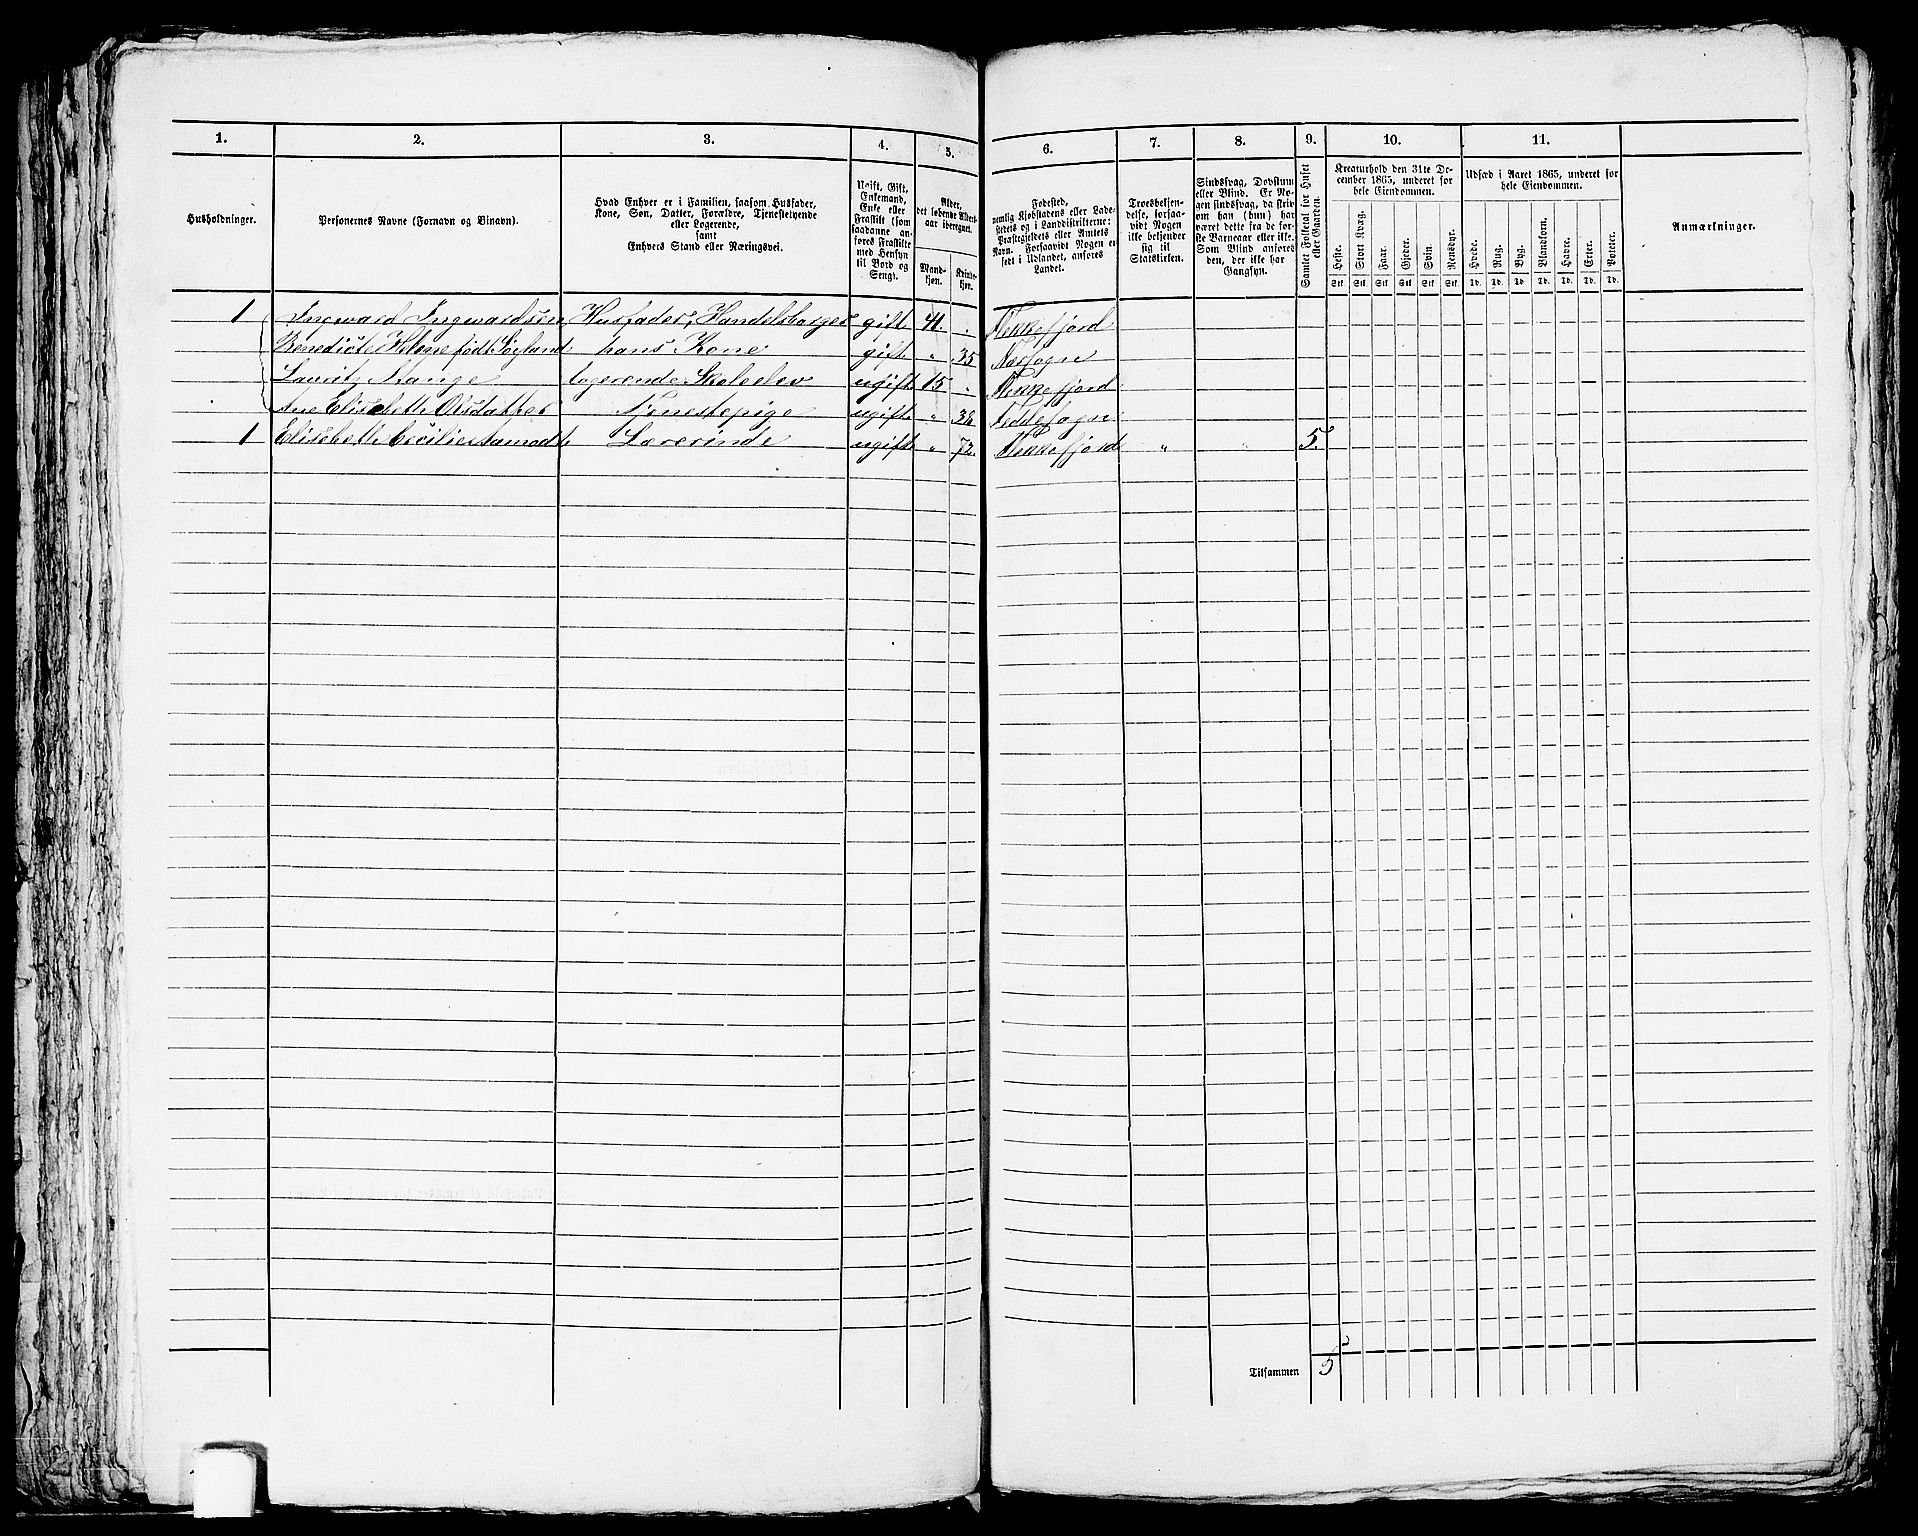 1. 2. 3. 4. 5. 6. 7. 8. 9. 10. 11.
Husholdninger.
Personernes Navne (Fornavn og Binavn).
Hvad Enhver er i Familien, saasom Husfader,
Kone, Søn, Datter, Forældre, Tjenestetyende
eller Logerende,
samt
Enhvers Stand eller Næringsvei.
Ugift, Gift,
Enkemand,
Enke eller
Fraskilt (som
saadanne an-
føres Fraskilte
med Hensyn
til Bord og
Seng).
Alder,
det løbende Alders-
aar iberegnet.
Mand-
kjøn.
Kvinde-
kjøn.
Fødested,
nemlig Kjøbstadens eller Lade-
stedets og i Landdistrikterne:
Præstegjeldets eller Amtets
Navn. Forsaavidt Nogen er
født i Udlandet, anføres
Landet.
Troesbekjen-
delse, forsaa-
vidt Nogen
ikke bekjender
sig til
Statskirken.
Sindssvag, Døvstum
eller Blind. Er No-
gen sindssvag, da skriv
om han (hun) har
været dette fra de før-
ste Barneaar eller ikke.
Som Blind anføres
den, der ikke har
Gangsyn.
Samlet Folketal for Huset
eller Gaarden.
Kreaturhold den 31te De-
cember 1865, underet for
hele Eiendommen.
Heste. Stort Kvæg. Faar. Gjeder. Svin. Rensdyr.
Stk. Stk. Stk. Stk. Stk. Stk.
Udsæd i Aaret 1865, underet for
hele Eiendommen.
Hvede. Rug. Byg. Blandkorn. Havre. Erter. Poteter.
Td. Td. Td. Td. Td. Td. Td.
Anmærkninger.
1 Ingward Ingwardsen Husfader, Handelsborger gift 41. Flekkefjord
Benedicte Helene født Søyland hans Kone gift " 35 Nærsogn
Lauritz Mange logerende Skoleelev ugift 15 " Flekkefjord
Ane Elisabeth Olsdatter Tjenestepige ugift " Feddesogn
1 Elisabeth Cecilie Lærerinde ugift " 72. Flekkefjord " " 5.
Tilsammen 5